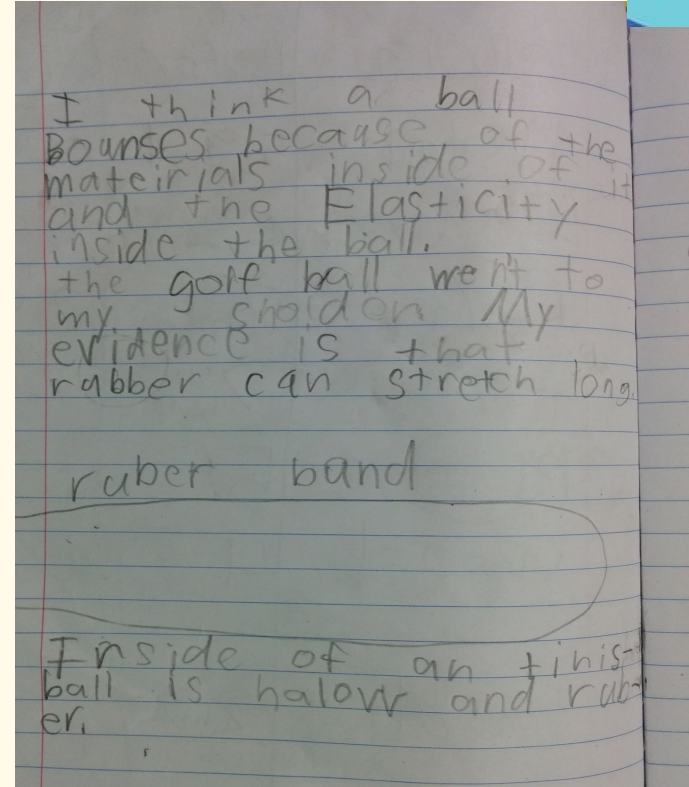 I think a ball
Bounses because of the
mateirials inside of it
and the Elasticity
inside the ball.
the golf ball went to
my sholder My
evidence is that
rubber can stretch long.
ruber band
Inside of an tinis-
ball is halow and rub-
er.